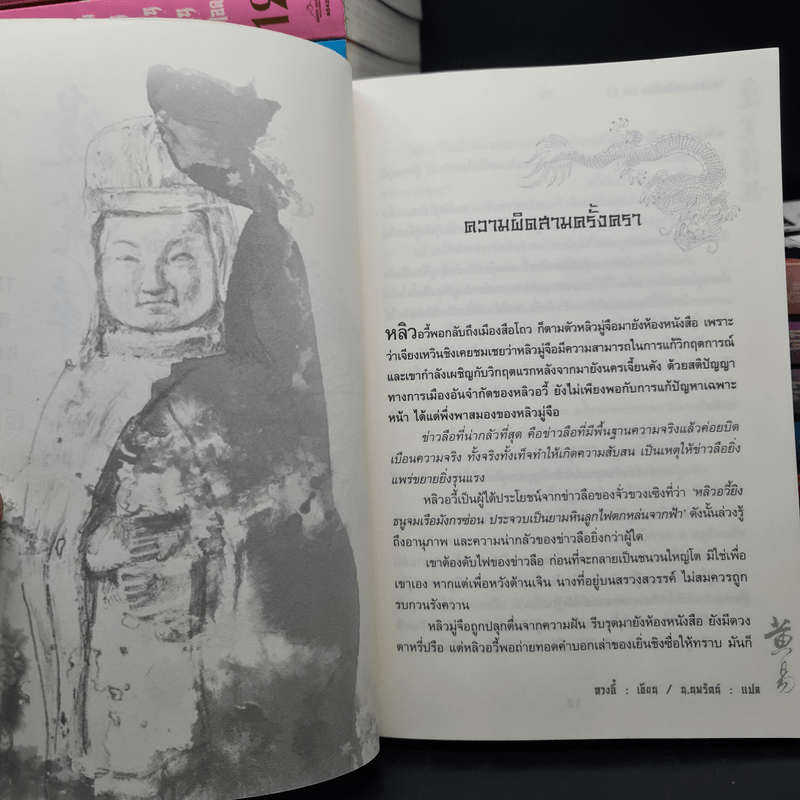 19
ความผิดสามครั้งครา
หลิวอวี้พอกลับถึงเมืองสือโถว ก็ตามตัวหลิวมู่จือมายังห้องหนังสือ เพราะ
ว่าเจียงเหวินชิงเคยชมเชยว่าหลิวมู่จือมีความสามารถในการแก้วิกฤตการณ์
และเขากำลังเผชิญกับวิกฤตแรกหลังจากมายังนครเจี้ยนคัง ด้วยสติปัญญา
ทางการเมืองอันจำกัดของหลิวอวี้ ยังไม่เพียงพอกับการแก้ปัญหาเฉพาะ
หน้า ได้แต่พึ่งพาสมองของหลิวมู่จือ
ข่าวลือที่น่ากลัวที่สุด คือข่าวลือที่มีพื้นฐานความจริงแล้วค่อยบิด
เบือนความจริง ทั้งจริงทั้งเท็จทำให้เกิดความสับสน เป็นเหตุให้ข่าวลือยิ่ง
แพร่ขยายยิ่งรุนแรง
หลิวอวี้เป็นผู้ได้ประโยชน์จากข่าวลือของจั๋วขวงเซิงที่ว่า 'หลิวอวี้ยิง
ธนูจมเรือมังกรซ่อน ประจวบเป็นยามหินลูกไฟตกหล่นจากฟ้า' ดังนั้นล่วงรู้
ถึงอานุภาพ และความน่ากลัวของข่าวลือยิ่งกว่าผู้ใด
เขาต้องดับไฟของข่าวลือ ก่อนที่จะกลายเป็นชนวนใหญ่โต มิใช่เพื่อ
เขาเอง หากแต่เพื่อหวังต้านเจิน นางที่อยู่บนสรวงสวรรค์ ไม่สมควรถูก
รบกวนรังควาน
หลิวมู่จือถูกปลุกตื่นจากความฝัน รีบรุดมายังห้องหนังสือ ยังมีดวง
ตาหรี่ปรือ แต่หลิวอวี้พอถ่ายทอดคำบอกเล่าของเยิ่นชิงซื่อให้ทราบ มันก็
黄易
หวงอี้ : เขียน / น.นพรัตน์ : แปล